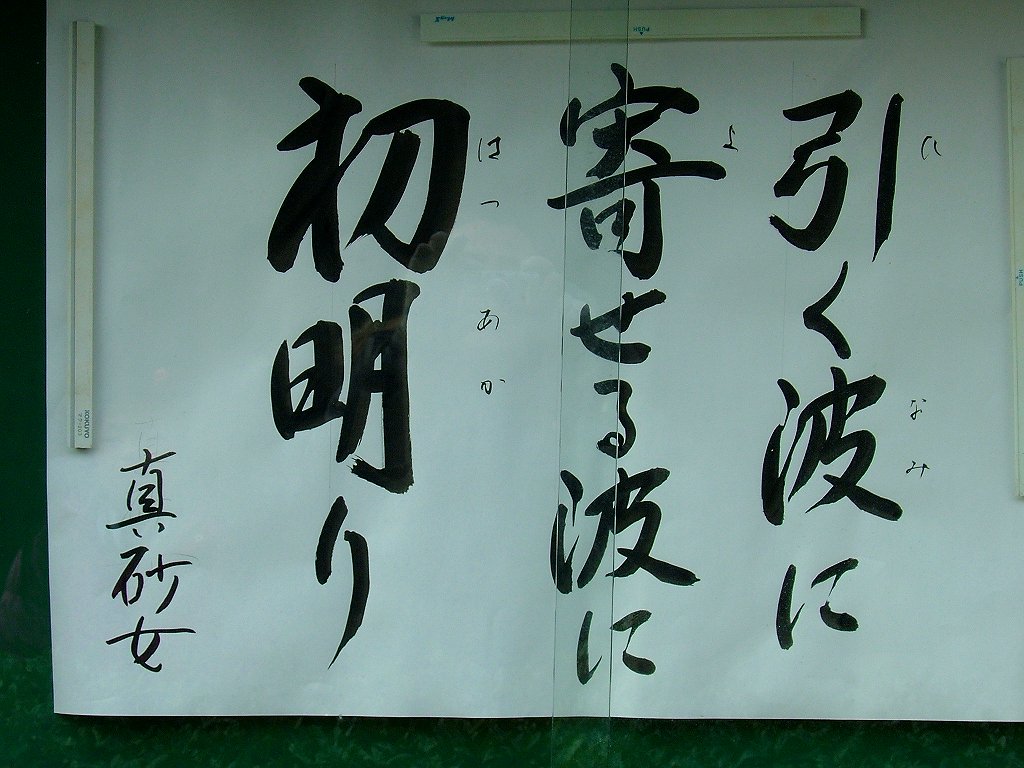 引く波に
ひ
なみ
寄せる波に
よ
初明り
はつ あか
真砂女
KOKUYO
PUSH